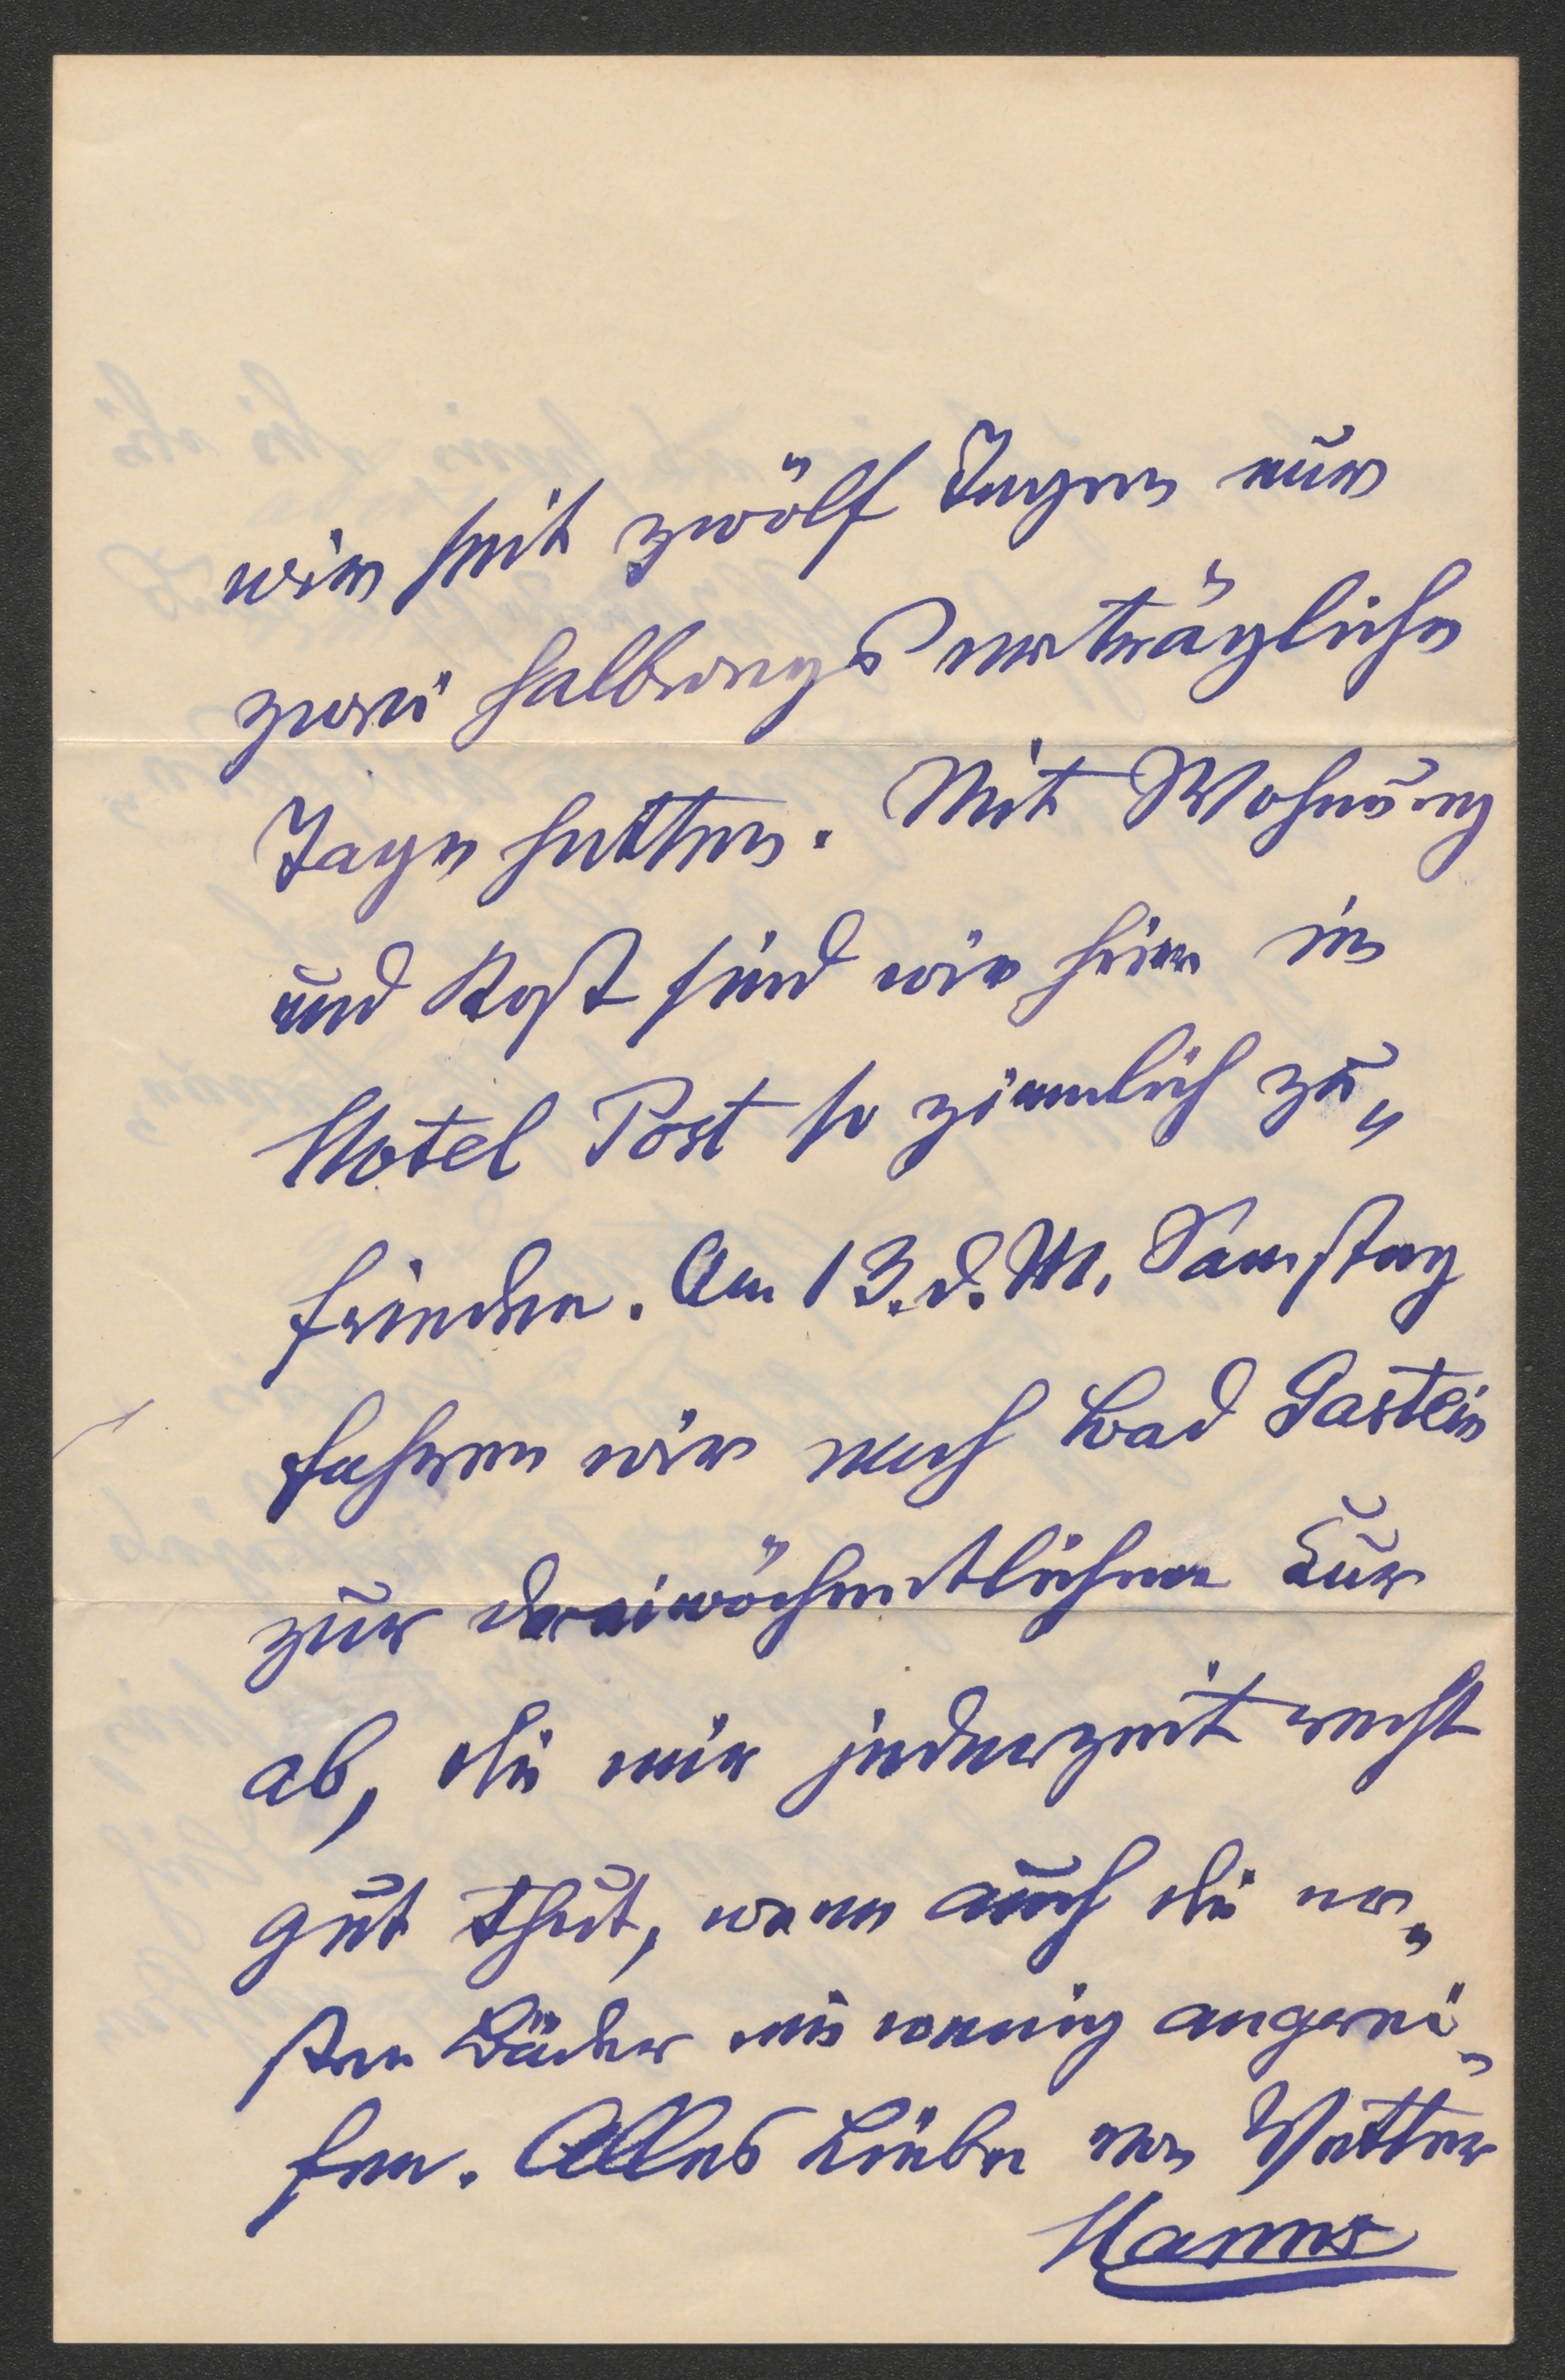 wir seit zwölf Tagen nur
zwei halbwegs erträgliche
Tage hatten. Mit Wohnung
und Kost sind wir hier im
Hotel Post so ziemlich zu„
frieden. Am 13. d. M. Samstag
fahren wir nach Bad Gastein
zur dreiwöchentlichen Kur
ab, die mir jederzeit recht
gut thut, wenn auch die er„
sten Bäder ein wenig angrei„
fen. Alles Liebe von Vetter
Hanns